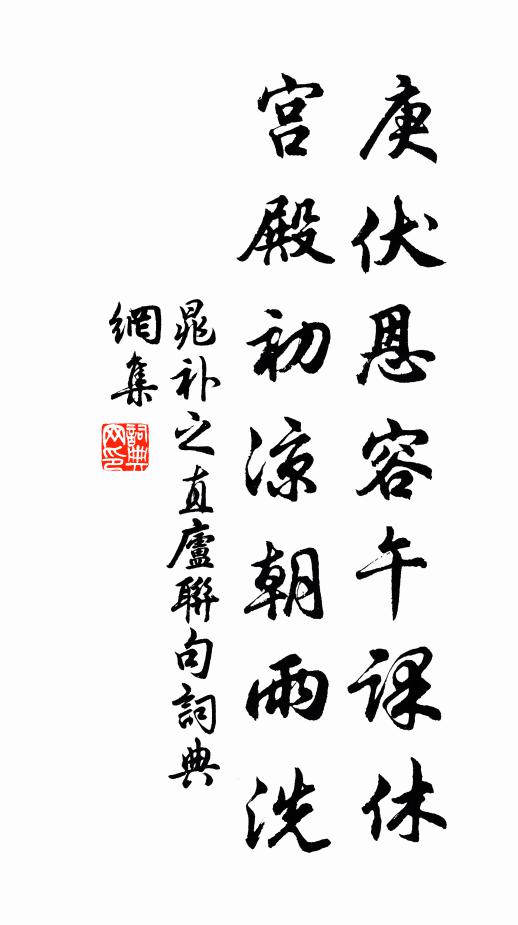 庚伏恩容午課休
宮殿初涼朝雨洗
晁补之直廬聯句詞典
網集
詞典
网印